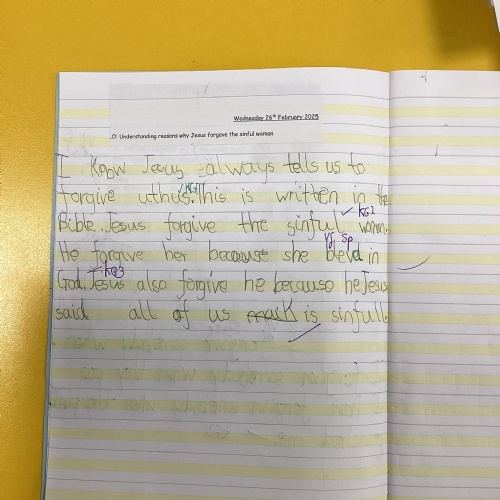 Wednesday 26th February 2025
.O: Understanding reasons why Jesus forgave the sinful woman
I know Jesus always tells us to
forgive uthus. This is written in the
Bible. Jesus forgive the sinful woman.
He forgive her because she bevd in
God. Jesus also forgive he because he Jesus
said all of us is sinfull.
✓ KG1
✓ KG2
Sp
KG3